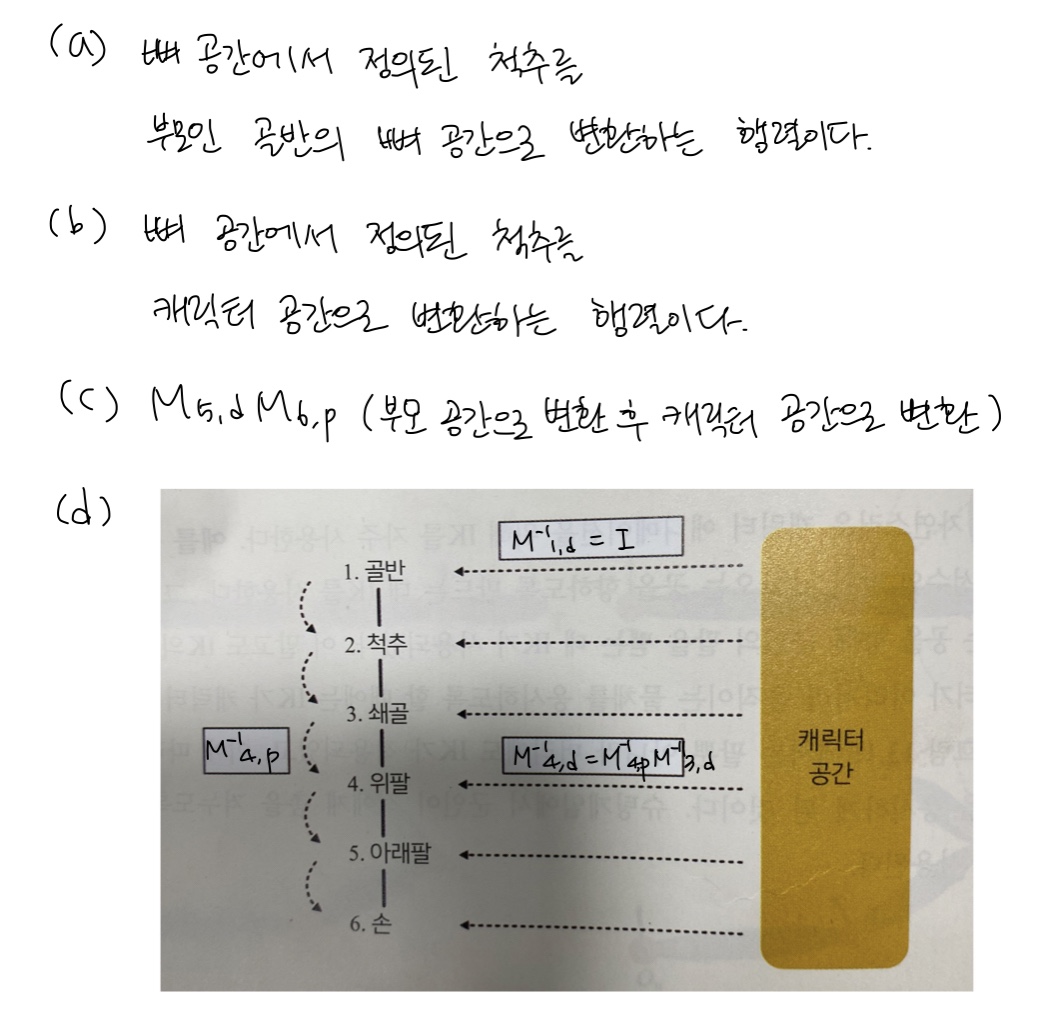 (a) 뼈 공간에서 정의된 척추를
부모인 골반의 뼈 공간으로 변환하는 행렬이다.
(b) 뼈 공간에서 정의된 척추를
캐릭터 공간으로 변환하는 행렬이다.
(c) M₅,d M₆,p (부모 공간으로 변환 후 캐릭터 공간으로 변환)
(d)
M⁻¹₁,d = I
1. 골반
2. 척추
3. 쇄골
캐릭터
공간
M⁻¹₄,p
M⁻¹₄,d = M⁻¹₄p M⁻¹₃,d
4. 위팔
5. 아래팔
6. 손